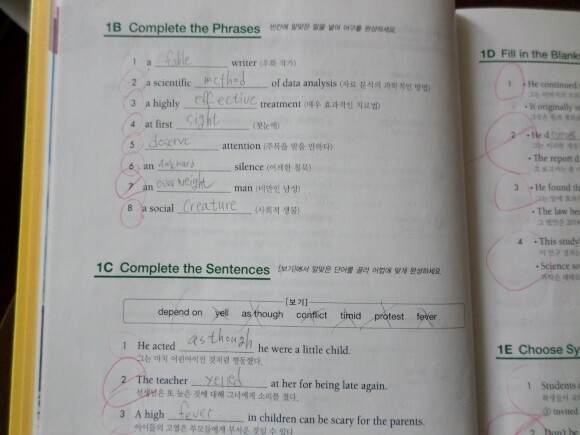 1B Complete the Phrases 빈칸에 알맞은 말을 넣어 어구를 완성하세요.
1 a fable writer (우화 작가)
2 a scientific method of data analysis (자료 분석의 과학적인 방법)
3 a highly effective treatment (매우 효과적인 치료법)
4 at first sight (첫눈에)
5 deserve attention (주목을 받을 만하다)
6 an awkward silence (어색한 침묵)
7 an overweight man (비만인 남성)
8 a social creature (사회적 생물)
1C Complete the Sentences [보기]에서 알맞은 단어를 골라 어법에 맞게 완성하세요.
[보기]
depend on yell as though conflict timid protest fever
1 He acted as though he were a little child.
그는 마치 어린아이인 것처럼 행동했다.
2 The teacher yelled at her for being late again.
선생님은 또 늦은 것에 대해 그녀에게 소리를 쳤다.
3 A high fever in children can be scary for the parents.
아이들의 고열은 부모들에게 무서운 것일 수 있다.
1D Fill in the Blank
1 • He continued
• It originally
2 • He d
• The report d
3 • He found th
• The law be
4 • This study
• Science so
1E Choose Sy
1 Students
① invited
2 Don't be